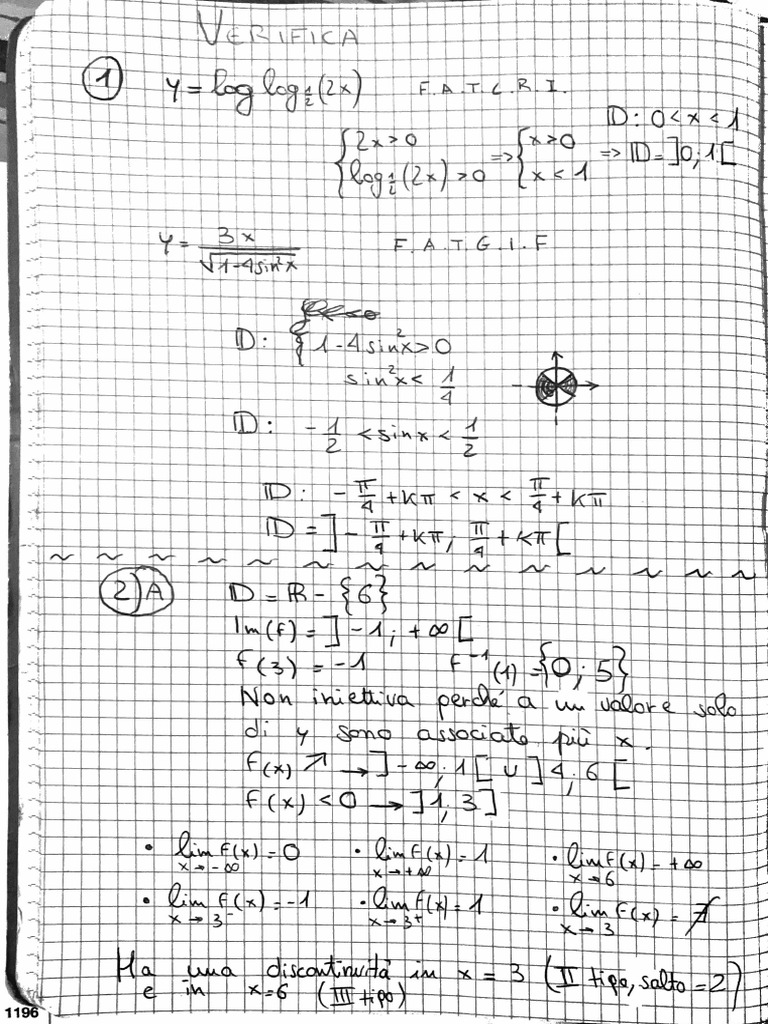 VERIFICA
① y = log log_{1/2}(2x) F.A.T.L.R.I.
D: 0 < x < 1
{2x > 0 => {x > 0 => D = ]0; 1[
{log_{1/2}(2x) > 0 {x < 1
y = 3x / √(1-4sin²x) F.A.T.G.I.F
D: { 1-4sin²x > 0
sin²x < 1/4
D: -1/2 < sinx < 1/2
D: -π/4 + kπ < x < π/4 + kπ
D = ]-π/4 + kπ; π/4 + kπ[
~ ~ ~ ~ ~ ~ ~ ~ ~ ~ ~ ~ ~ ~
2)A D = R - {6}
Im(f) = ]-1; +∞[
f(3) = -1 f⁻¹(1) = {0; 5}
Non iniettiva perché a un valore solo
di y sono associate più x.
f(x) ↗ → ]-∞; 1[ ∪ ]4; 6[
f(x) < 0 → ]1; 3]
• lim_{x→-∞} f(x) = 0 • lim_{x→+∞} f(x) = 1 • lim_{x→6} f(x) = +∞
• lim_{x→3⁻} f(x) = -1 • lim_{x→3⁺} f(x) = 1 • lim_{x→3} f(x) = ∄
Ha una discontinuità in x = 3 (II tipo, salto = 2)
e in x=6 (III tipo)
1196